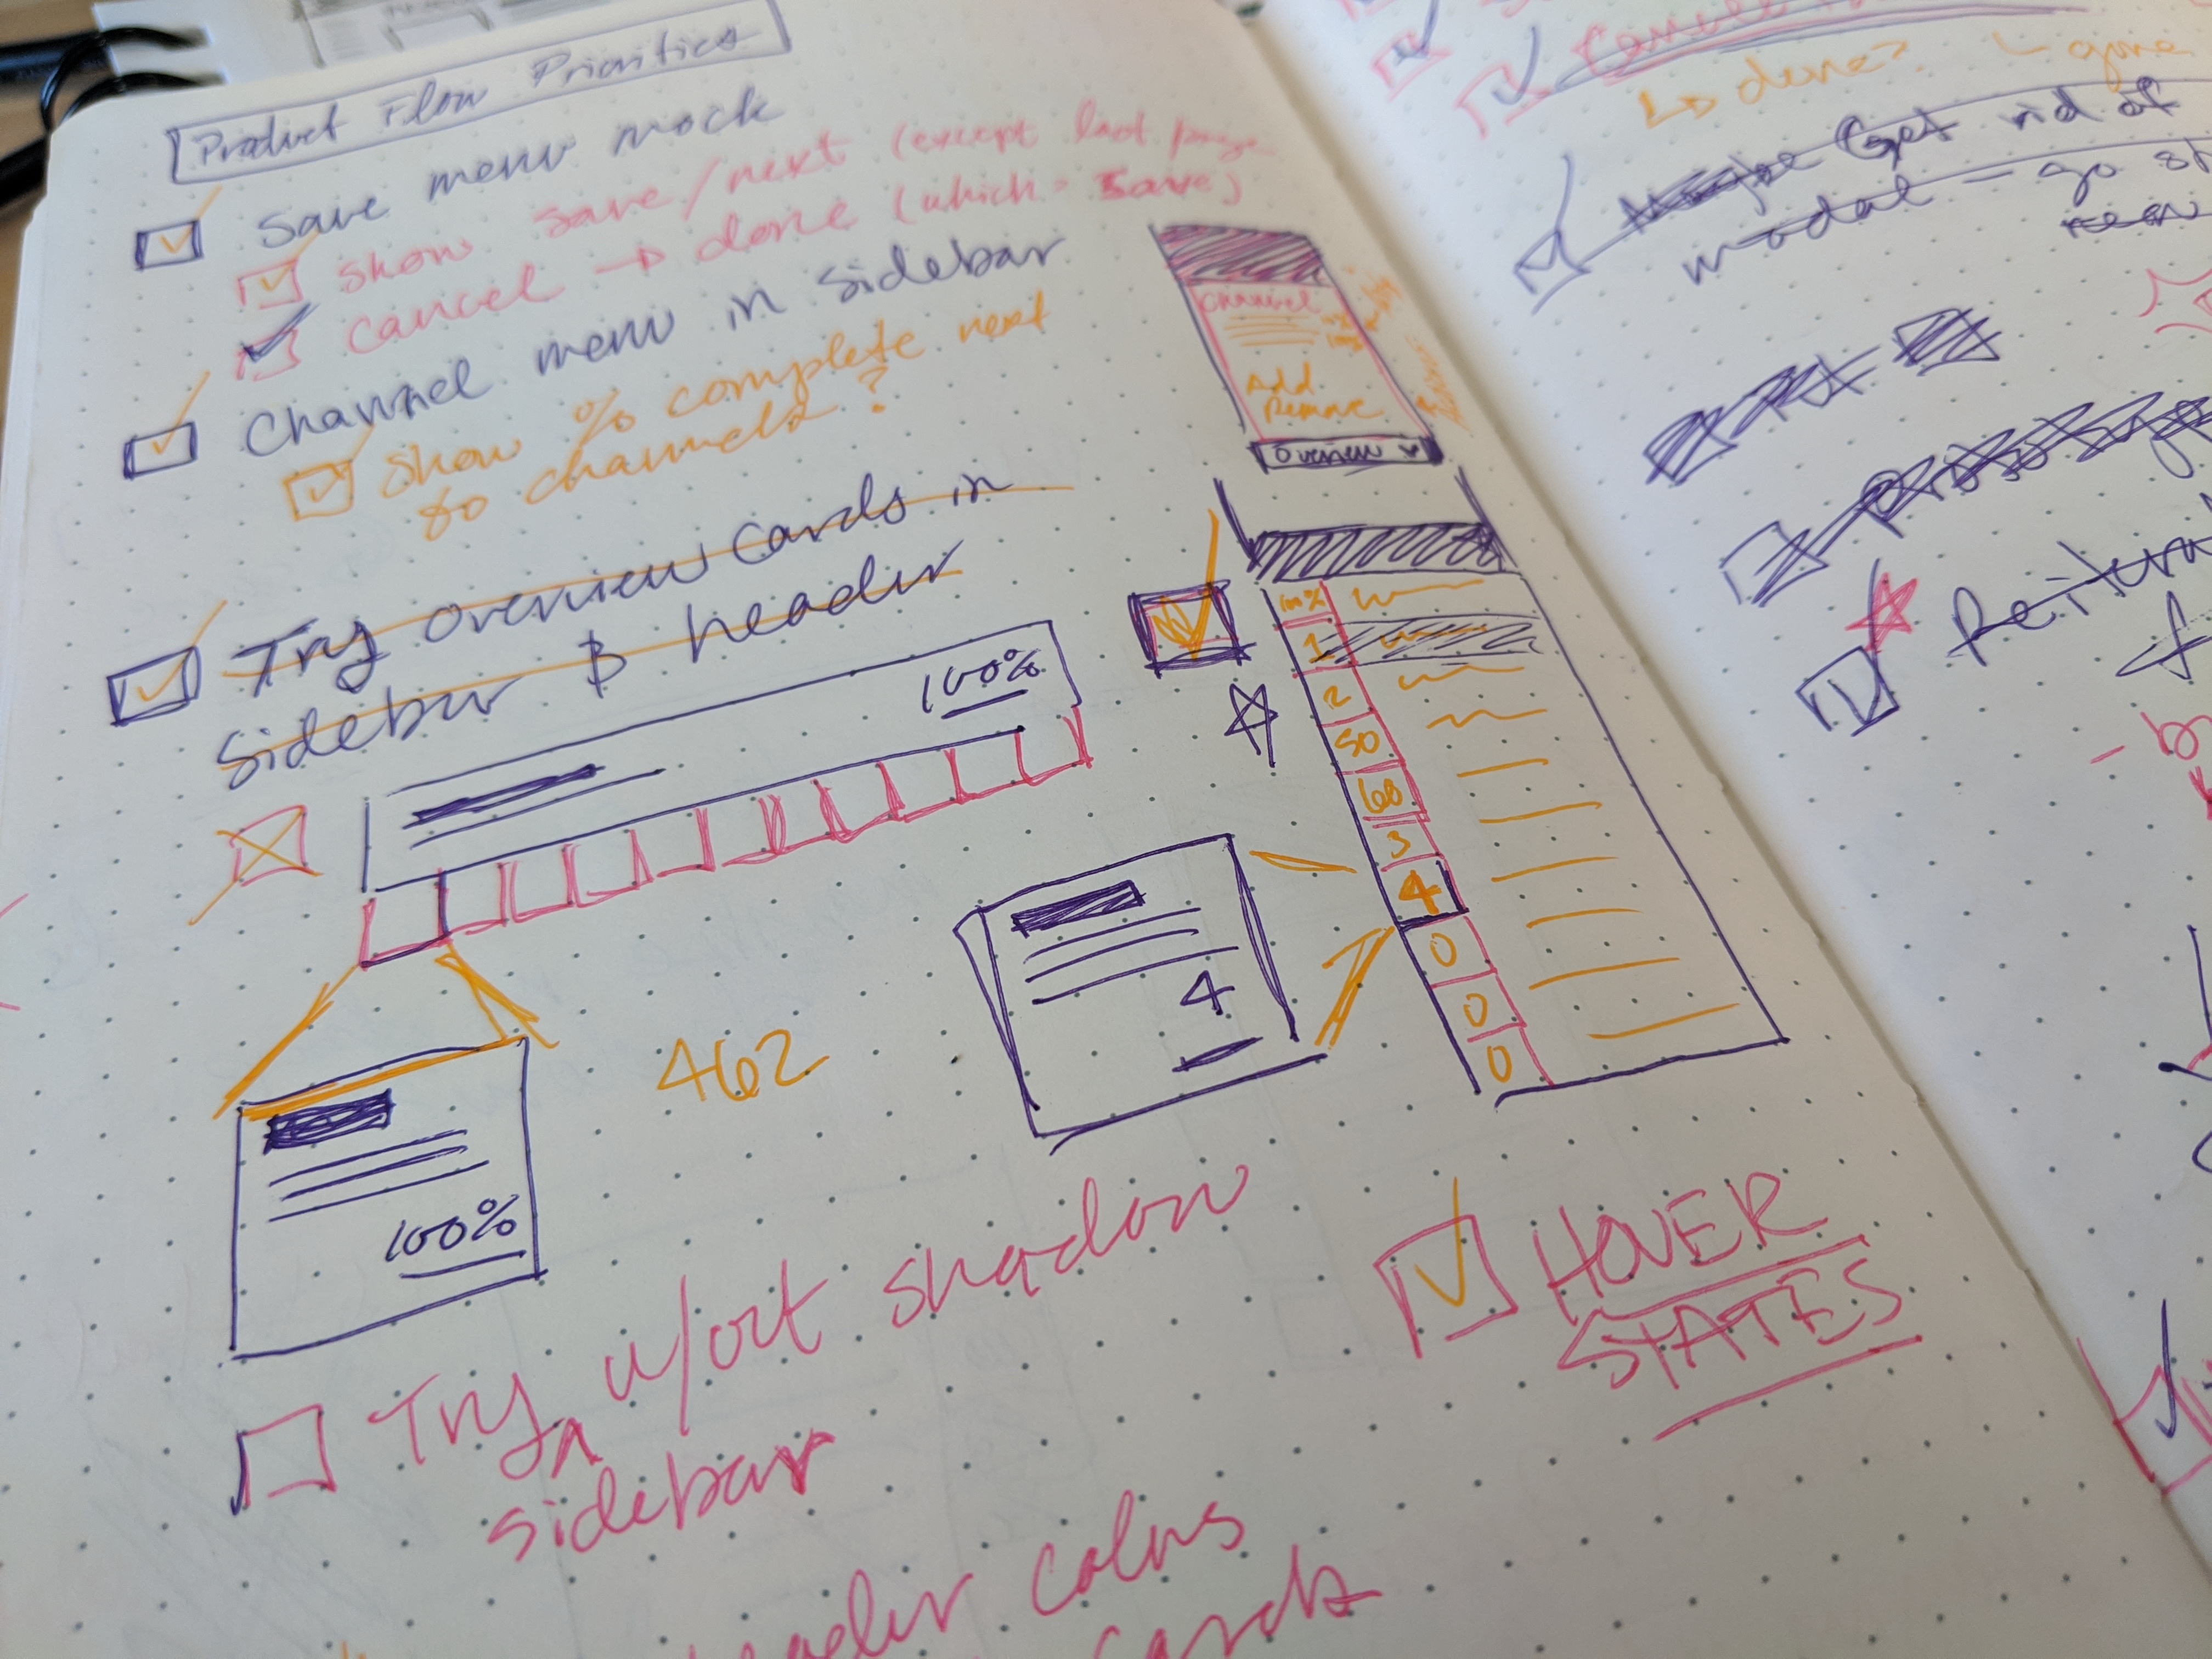 Product Flow Priorities
Save menu mock
show save/next (except last page
cancel → done (which = save)
Channel menu in sidebar
show % complete next
to channels?
Try overview cards in
sidebar & header
100%
100%
462
4
Channel
Add
Remove
Overview
100%
1
2
50
60
3
4
0
0
0
HOVER
STATES
Try w/out shadow
sidebar
header colors
cards
↳ done?
- gone
Maybe Get rid of
modal = go